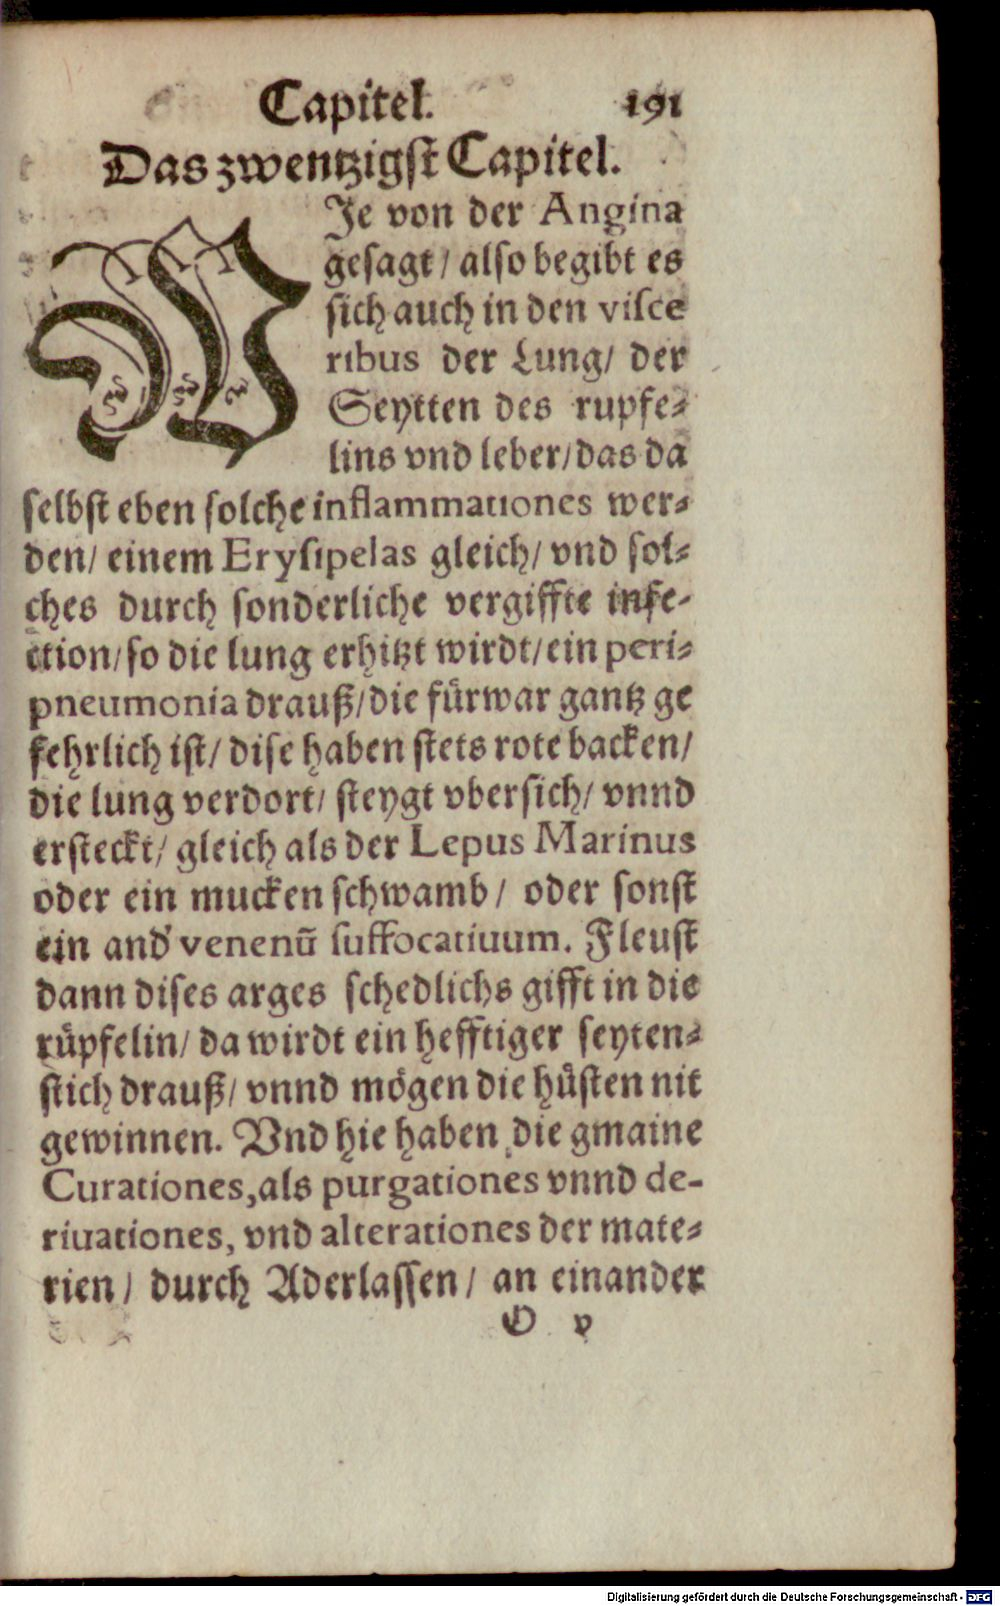 Capitel. 191
Das zwentzigst Capitel.
WIe von der Angina
gesagt / also begibt es
sich auch in den visce
ribus der Lung / der
Seytten des rupfe⸗
lins vnd leber / das da
selbst eben solche inflammationes wer⸗
den / einem Erysipelas gleich / vnd sol⸗
ches durch sonderliche vergiffte infe-
ction / so die lung erhitzt wirdt / ein peri⸗
pneumonia drauß / die fürwar gantz ge
fehrlich ist / dise haben stets rote backen /
die lung verdort / steygt vbersich / vnnd
ersteckt / gleich als der Lepus Marinus
oder ein mucken schwamb / oder sonst
ein and' venenū suffocatiuum. Fleust
dann dises arges schedlichs gifft in die
rüpfelin / da wirdt ein hefftiger seyten⸗
stich drauß / vnnd mögen die hüsten nit
gewinnen. Vnd hie haben die gmaine
Curationes, als purgationes vnnd de-
riuationes, vnd alterationes der mate⸗
rien / durch Aderlassen / an einander
O v
Digitalisierung gefördert durch die Deutsche Forschungsgemeinschaft - DFG